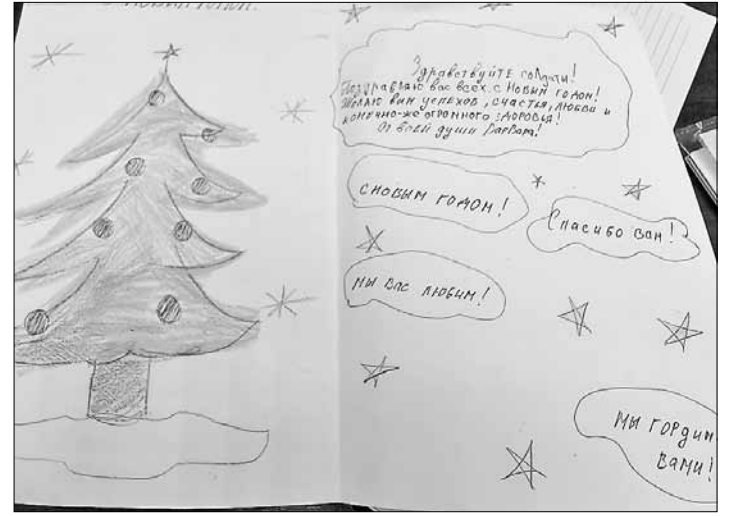 НОВЫМ ГОДОМ!
ЗдравствуйТЕ солдаты!
Поздравляю вас всех с Новым годом!
Желаю вам успехов, счастья, любви и
конечно-же огромного здоровья!
От всей души Варвара!
С НОВЫМ ГОДОМ!
Спасибо вам!
МЫ ВАС ЛЮБИМ!
МЫ ГОРДИМ
ВАМИ!